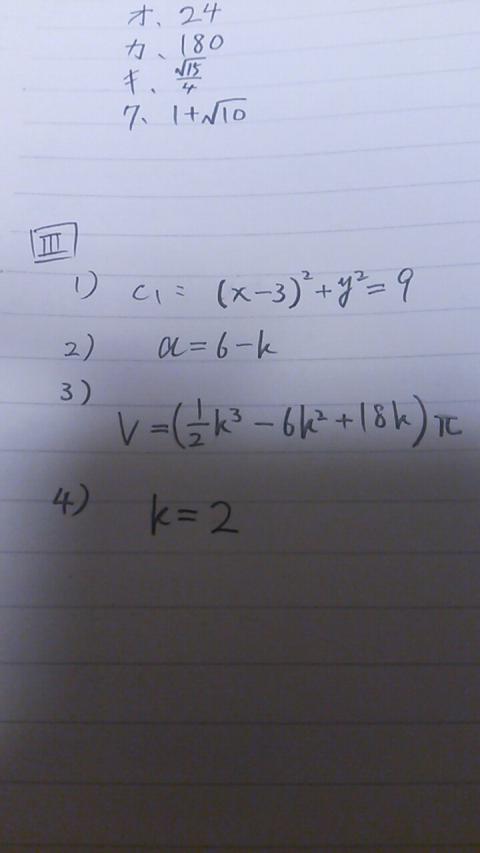 オ、24
カ、180
キ、√15/4
ク、1+√10
III
1) C₁ = (x-3)²+y²=9
2) a=6-k
3)
V=(1/2k³-6k²+18k)π
4) k=2